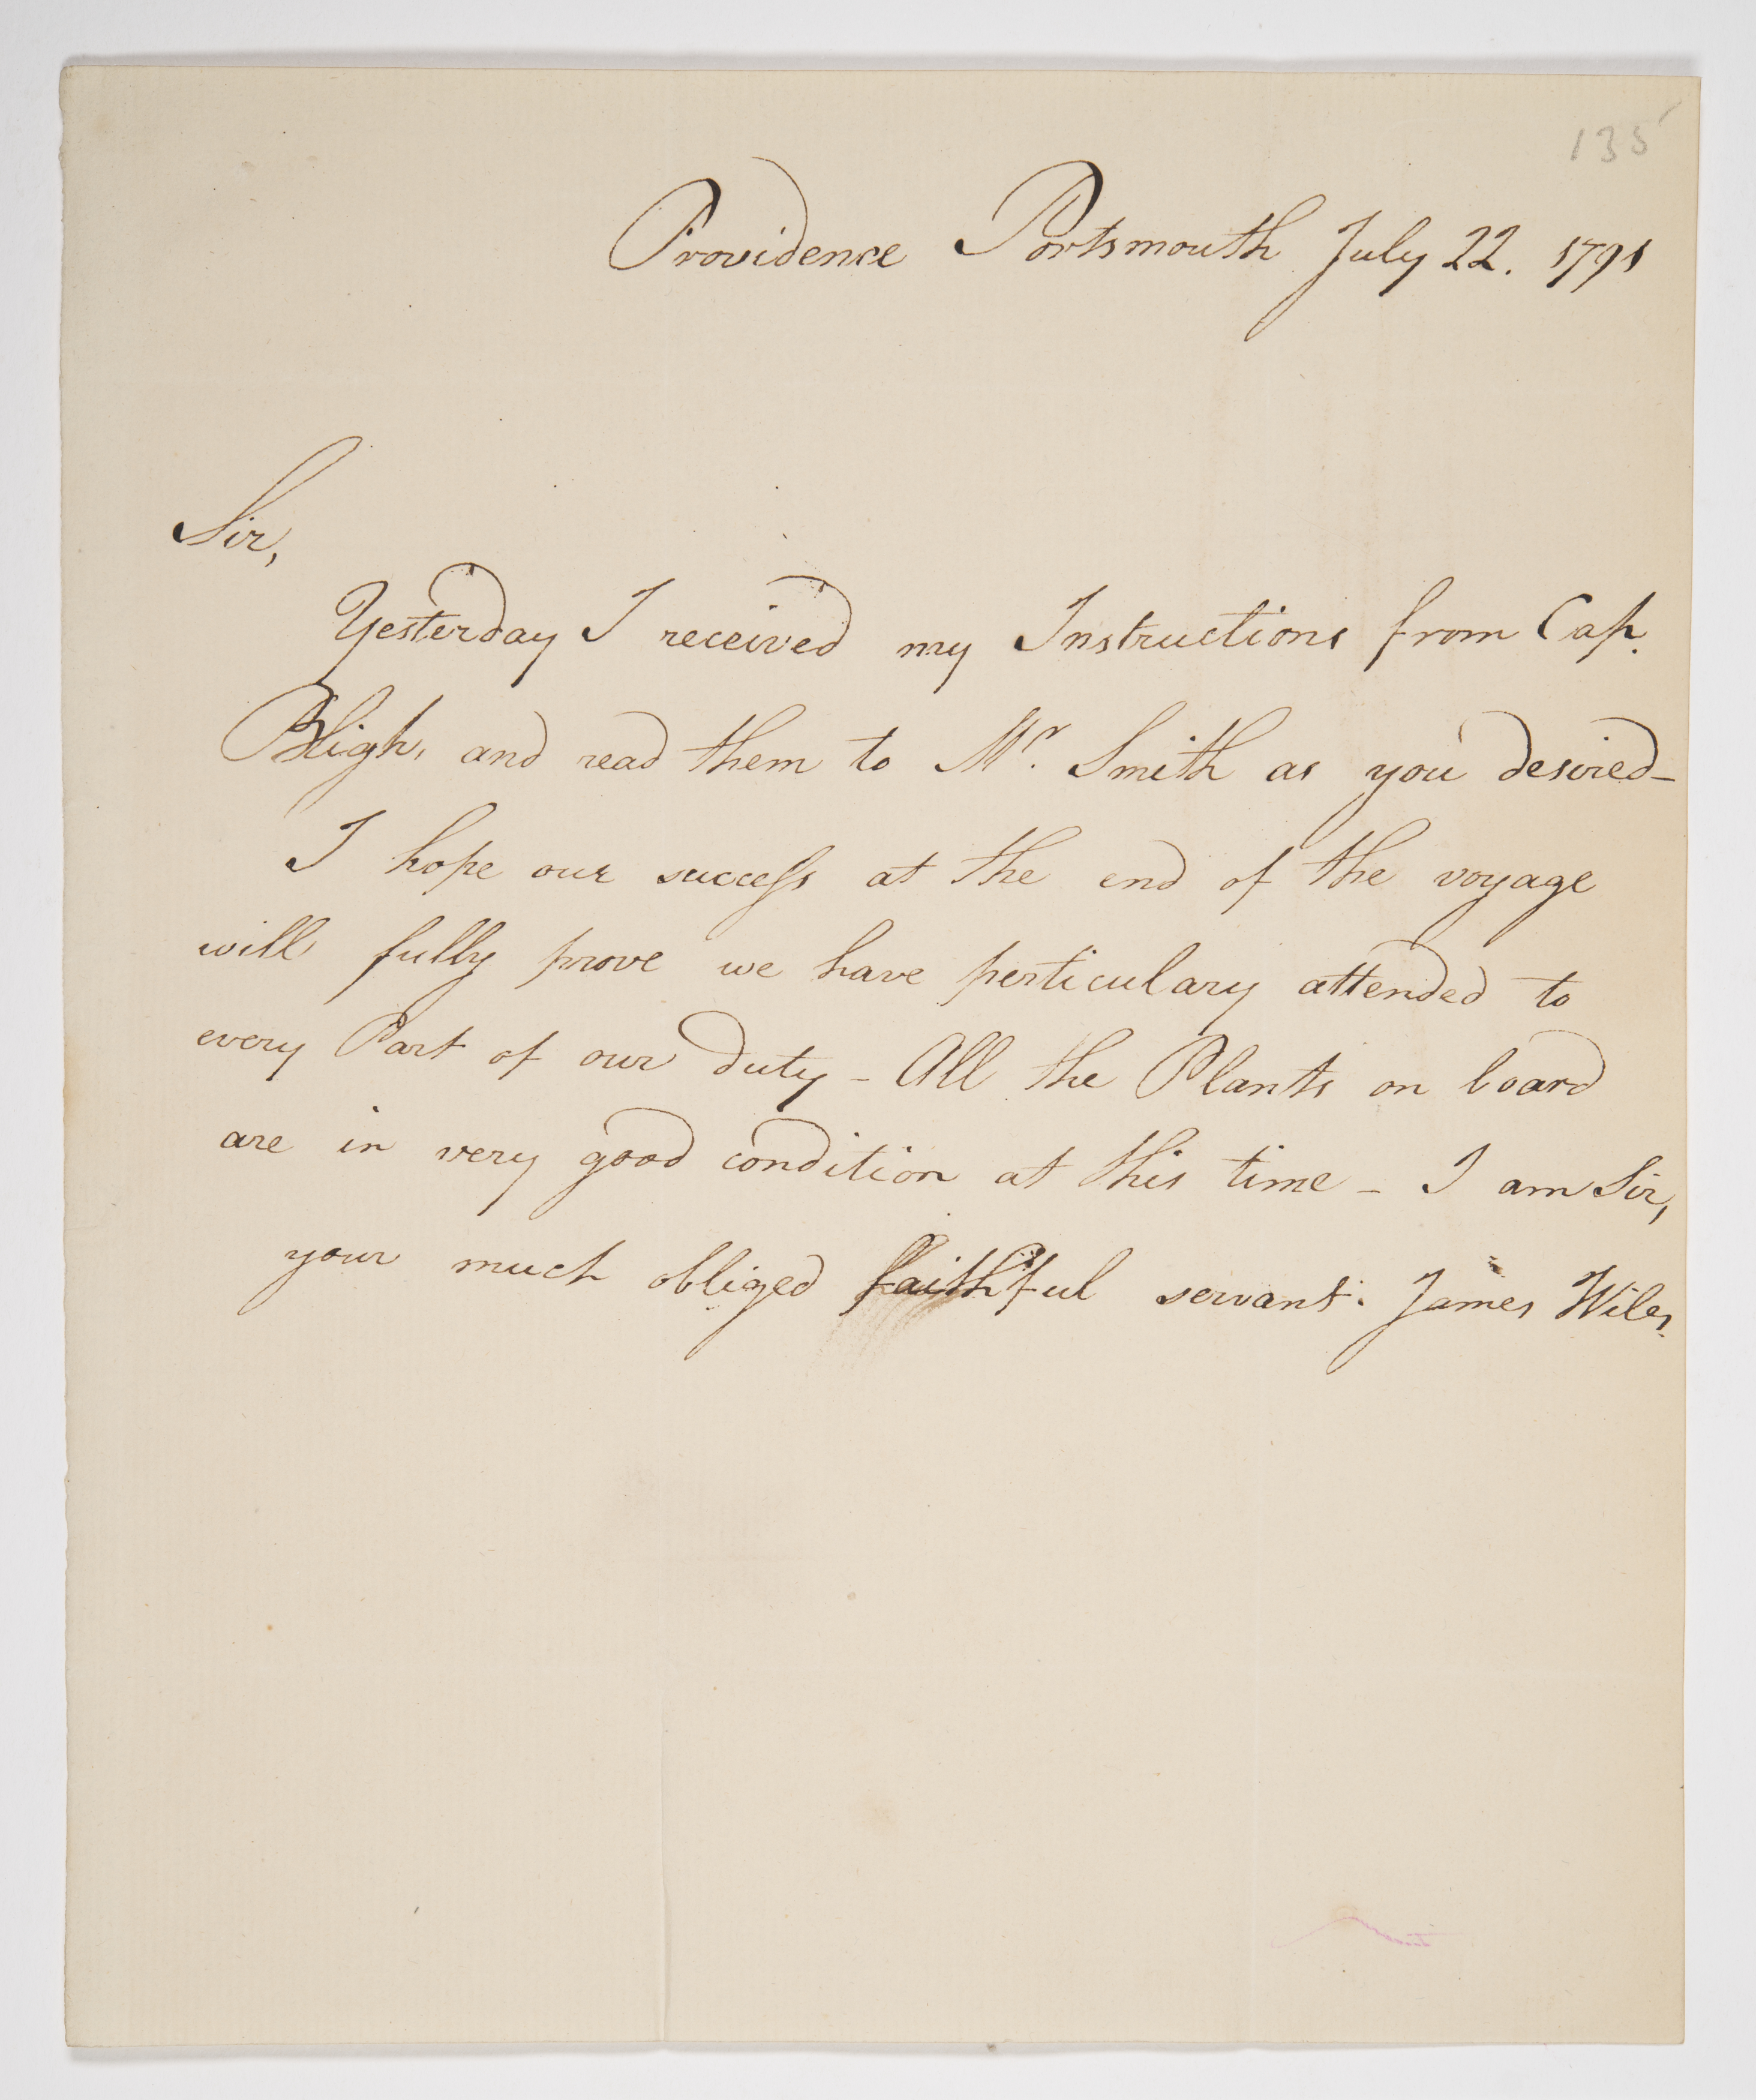 135
Providence Portsmouth July 22. 1791
Sir,
Yesterday I received my Instructions from Cap.
Bligh, and read them to Mr. Smith as you desired-
I hope our success at the end of the voyage
will fully prove we have perticulary attended to
every Part of our duty - All the Plants on board
are in very good condition at this time - I am Sir,
your much obliged faithful servant. James Wiles.